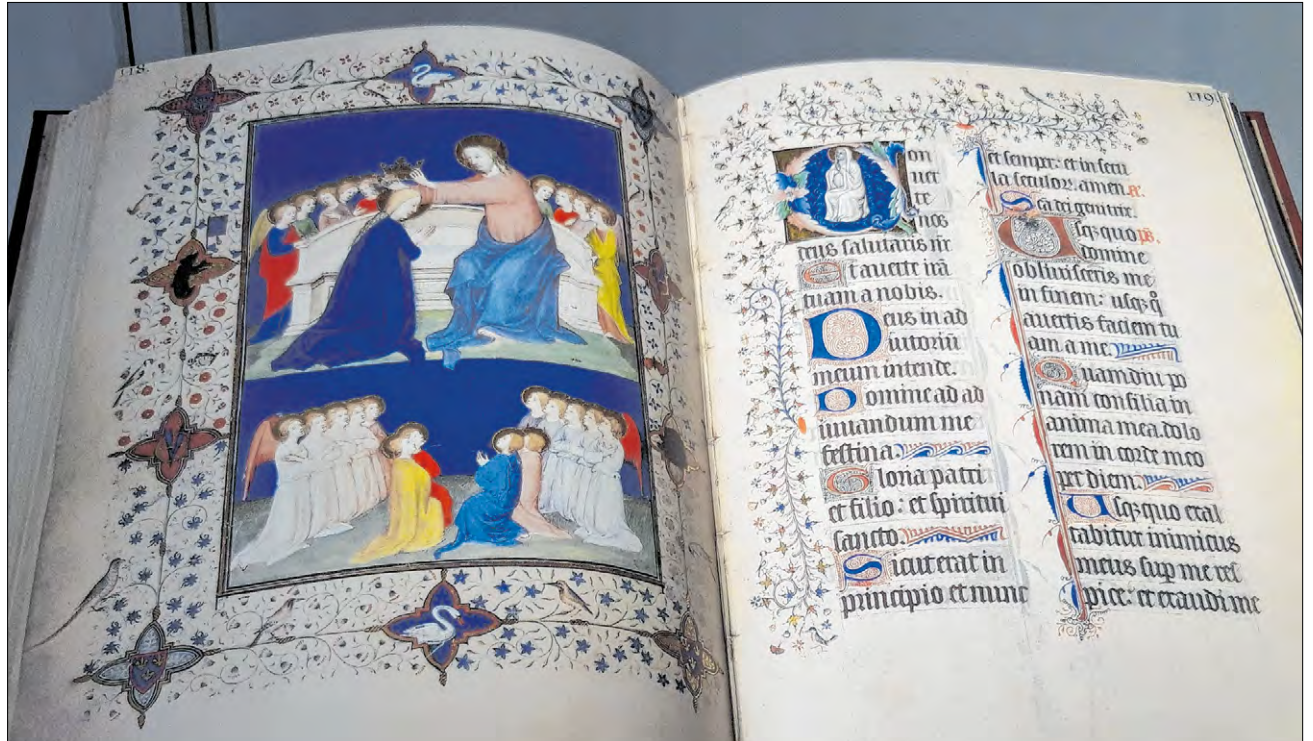 118
119
Con
uer
te
nos
deus salutaris nr̄
Et auerte irā
tuam a nobis.
Deus in ad
iutoriū
meum intende.
Domine ad ad
iuuandum me
festina.
Gloria patri
et filio: et spiritui
sancto.
Sicut erat in
principio et nunc
et semper: et in secu
la seculor. amen.
Sc̄a dei
Usqz quo ps.
domine
obliuisceris me
in finem: usqz q̊
auertis faciem tu
am a me.
Quamdiu po
nam consilia in
anima mea. dolo
rem in corde meo
per diem.
Usqz quo exal
tabitur inimicus
meus sup me res
pice: et exaudi me